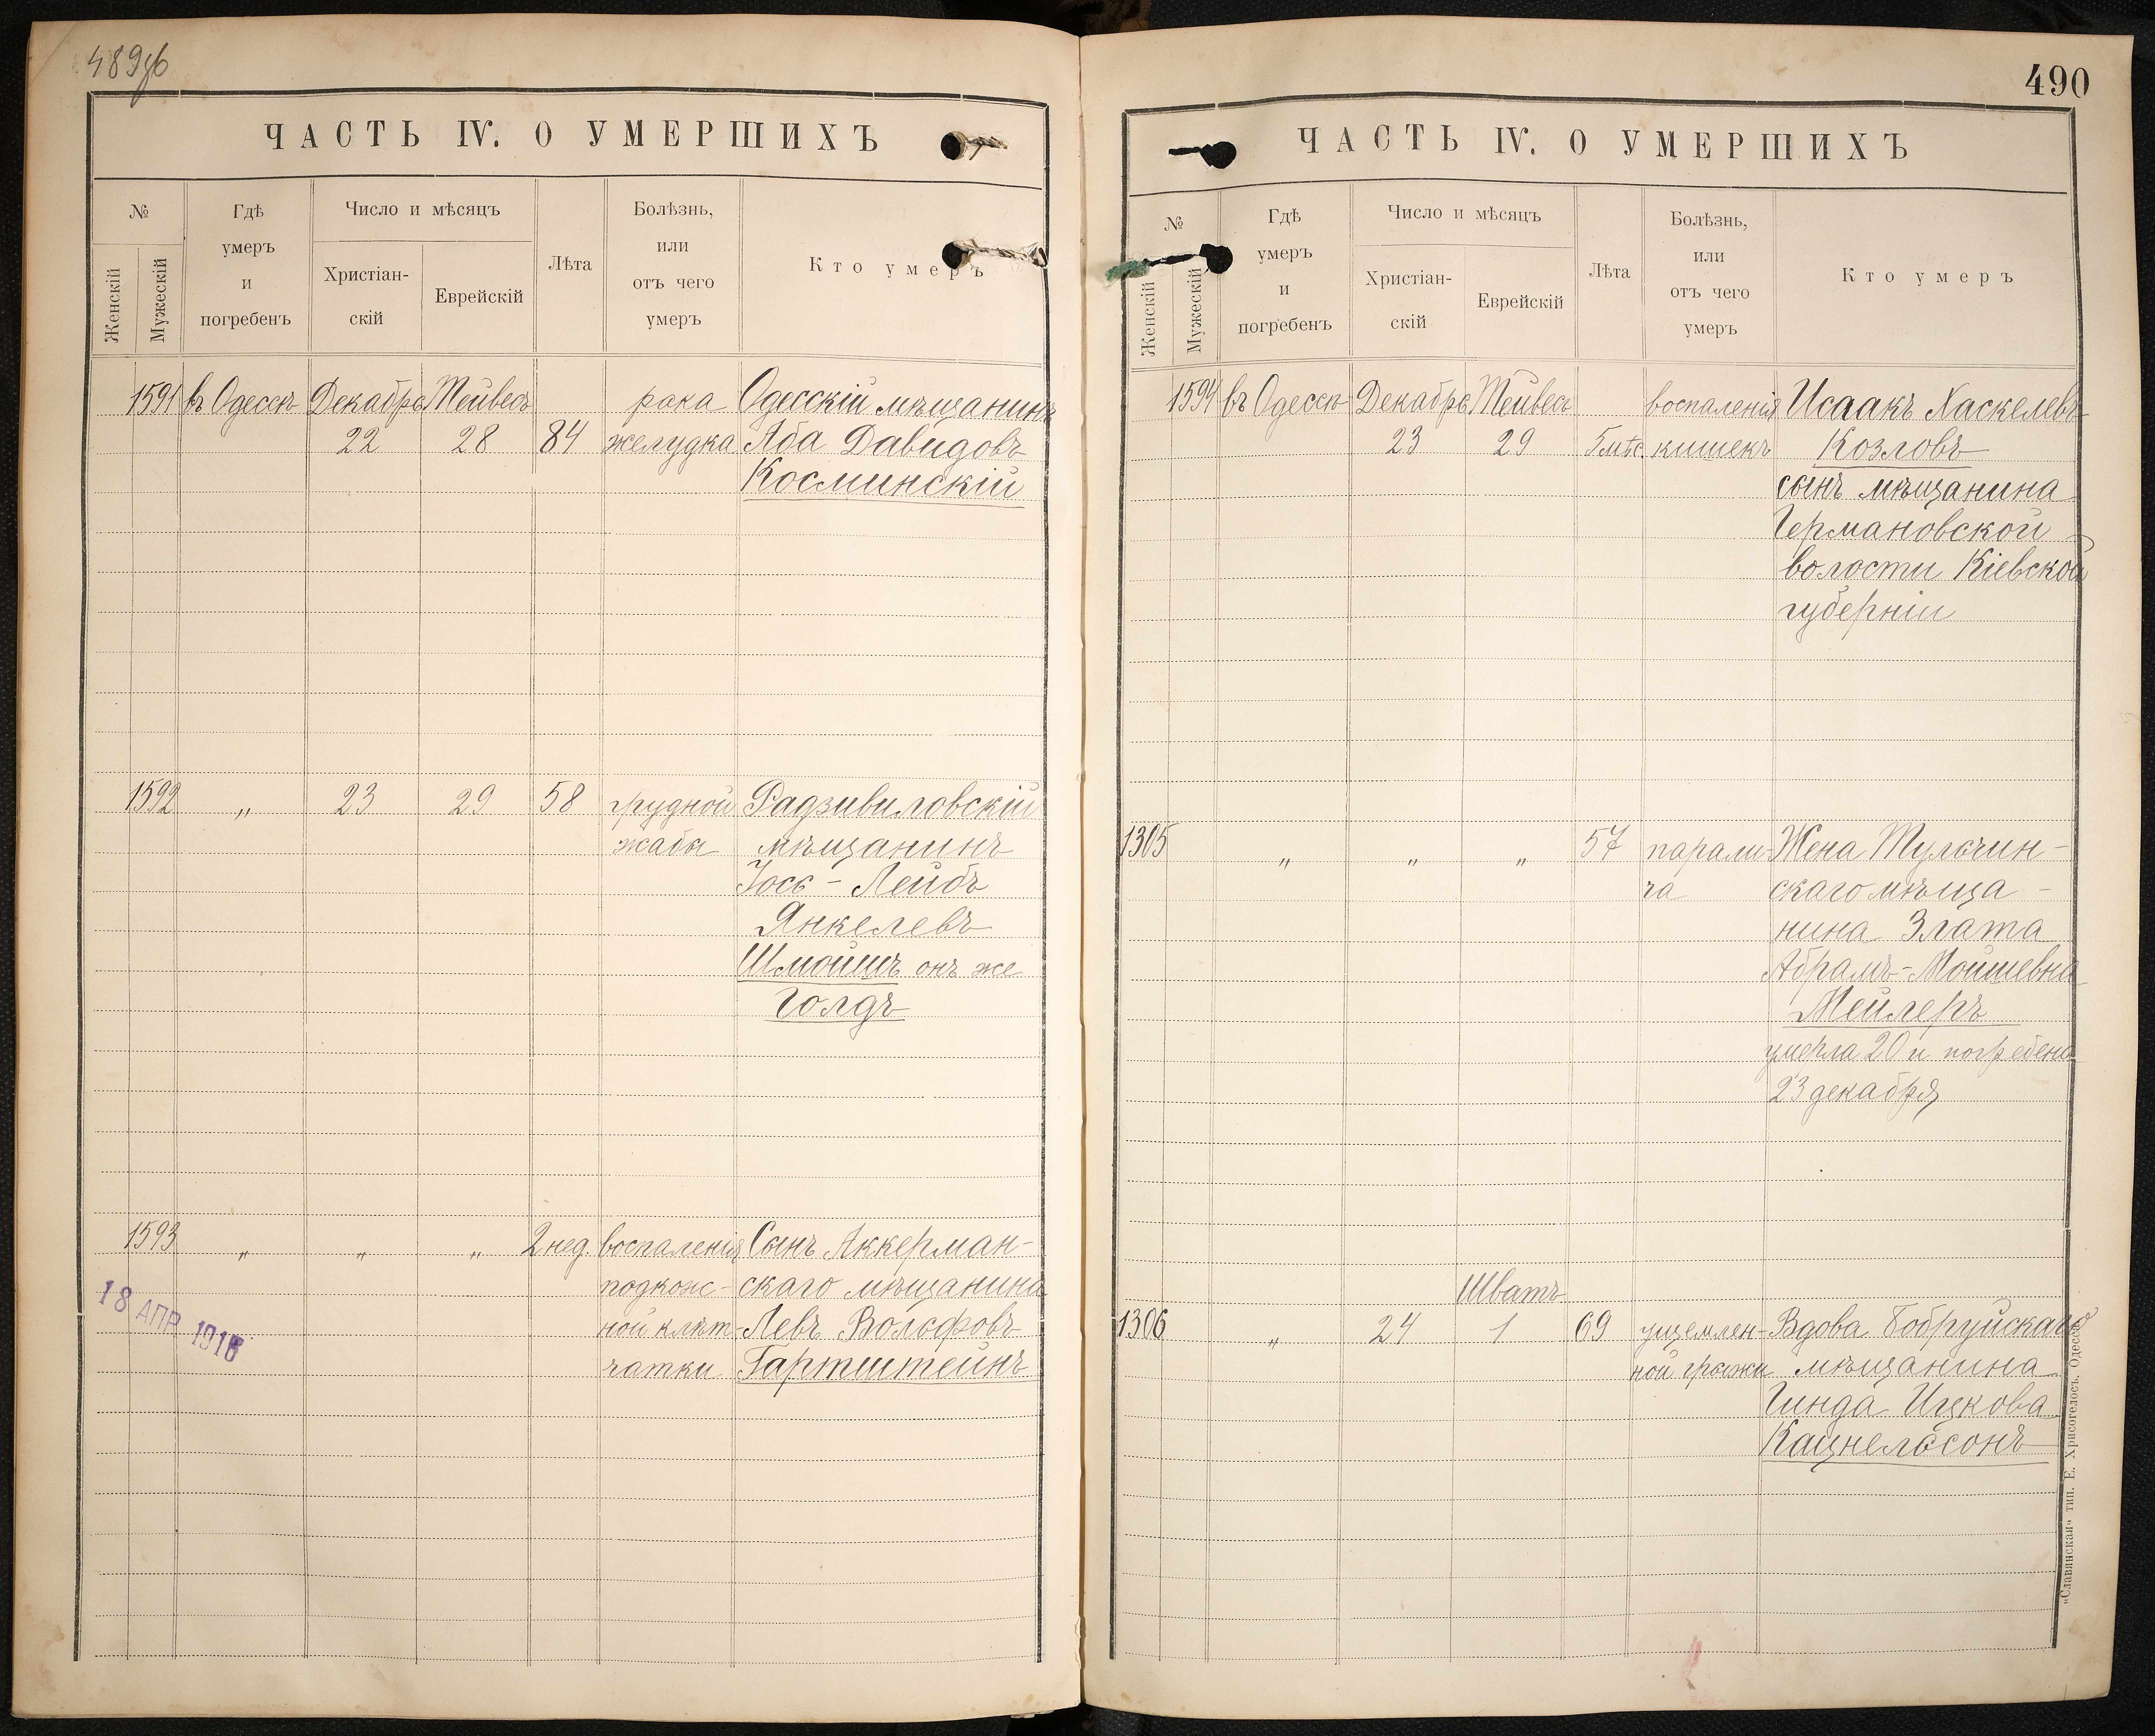 489об
ЧАСТЬ IV. О УМЕРШИХЪ
№
Женскій
Мужескій
Гдѣ
умеръ
и
погребенъ
Число и мѣсяцъ
Христіан-
скій
Еврейскій
Лѣта
Болѣзнь,
или
отъ чего
умеръ
Кто умеръ
1591 въ Одессѣ Декабрь Тейвесъ рака Одесскій мѣщанинъ
22 28 84 желудка Аба Давидовъ
Косминскій
1592 „ 23 29 58 грудной Радзивиловскій
жабы мѣщанинъ
Іось-Лейбъ
Янкелевъ
Шмоишъ онъ же
Голдъ
1593 „ „ „ 2 нед. воспаленія Сынъ Аккерман-
подкож- скаго мѣщанина
ной клѣт- Левъ Вольфовъ
чатки Гартштейнъ
18 АПР 1916
490
ЧАСТЬ IV. О УМЕРШИХЪ
№
Женскій
Мужескій
Гдѣ
умеръ
и
погребенъ
Число и мѣсяцъ
Христіан-
скій
Еврейскій
Лѣта
Болѣзнь,
или
отъ чего
умеръ
Кто умеръ
1594 въ Одессѣ Декабрь Тейвесъ воспаленія Исаакъ Хаскелевъ
23 29 5 мѣс. кишекъ Козловъ
сынъ мѣщанина
Германовской
волости Кіевской
губерніи
1305 „ „ „ 57 парали- Жена Тульчин-
ча скаго мѣща-
нина Злата
Абрамъ-Мошевна
Мейлеръ
умерла 20 и погребена
23 декабря
Шватъ
1306 „ 24 1 69 ущемлен- Вдова Бобруйскаго
ной грыжи мѣщанина
Гинда Ицкова
Кацнельсонъ
„Славянская" тип. Е. Хрисогелосъ. Одесса